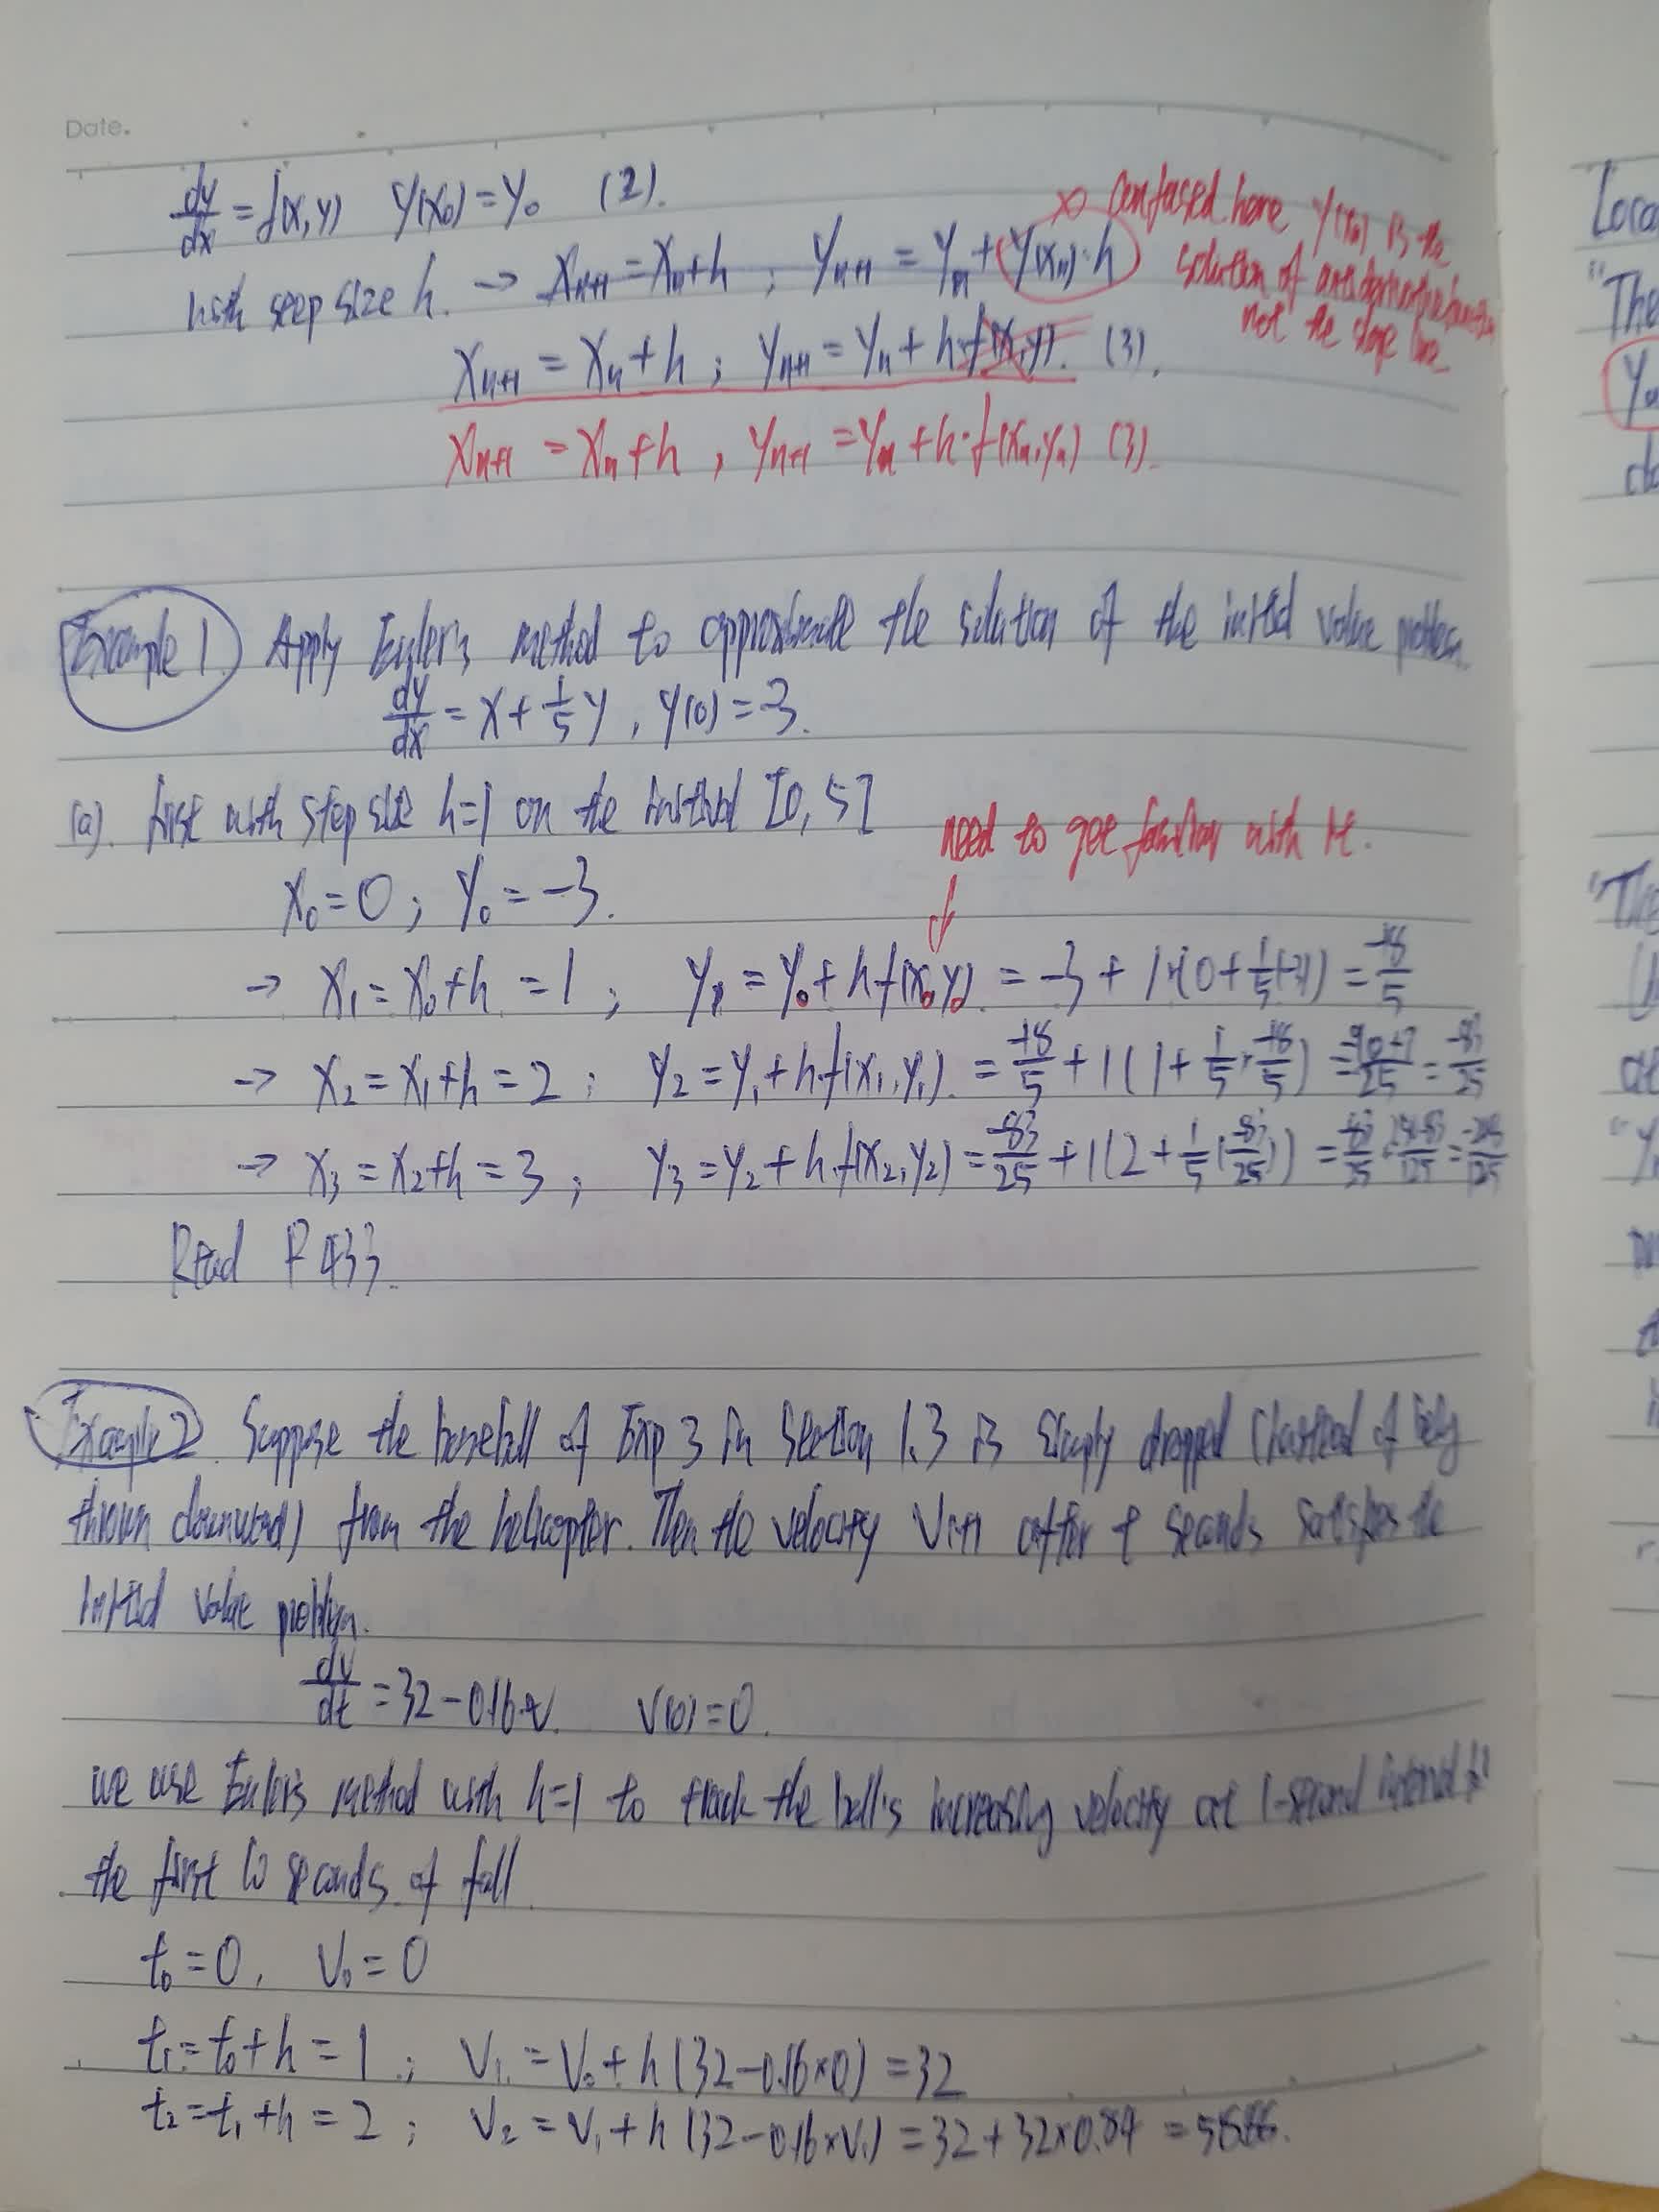 Date.
dy/dx = f(x,y) y(x₀) = y₀ (2).
x confused here y(xₙ) is the
with seep size h. → xₙ₊₁ = xₙ+h ; yₙ₊₁ = yₙ + y(xₙ)·h
solution of antiderivative function
not the slope line
xₙ₊₁ = xₙ + h ; yₙ₊₁ = yₙ + h·f(x,y). (3).
xₙ₊₁ = xₙ + h , yₙ₊₁ = yₙ + h·f(xₙ,yₙ) (3).
Example 1. Apply Euler's method to approximate the solution of the initial value problem.
dy/dx = x + 1/5 y , y(0) = -3.
(a). first with step size h=1 on the interval [0, 5]
need to get familiar with it.
x₀ = 0 ; y₀ = -3.
→ x₁ = x₀+h = 1 ; y₁ = y₀ + h·f(x₀,y₀) = -3 + 1·(0 + 1/5(-3)) = -18/5
→ x₂ = x₁+h = 2 ; y₂ = y₁ + h·f(x₁,y₁). = -18/5 + 1(1 + 1/5·-18/5) = -90+7/25 = -83/25
→ x₃ = x₂+h = 3 ; y₃ = y₂ + h·f(x₂,y₂) = -83/25 + 1(2 + 1/5(-83/25)) =
Read P433.
Example 2. Suppose the baseball of Exp 3 in Section 1.3 is simply dropped (instead of being
thrown downward) from the helicopter. Then the velocity v(t) after t seconds satisfies the
initial value problem.
dv/dt = 32 - 0.16v. v(0) = 0.
we use Euler's method with h=1 to track the ball's increasing velocity at 1-second interval for
the first 10 seconds of fall.
t₀ = 0 , v₀ = 0
t₁ = t₀+h = 1 ; v₁ = v₀ + h(32-0.16×0) = 32
t₂ = t₁+h = 2 ; v₂ = v₁ + h(32-0.16×v₁) = 32 + 32×0.84 =